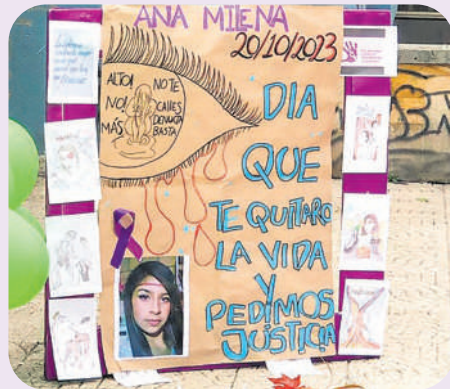 ANA MILENA
20/10/2023
ALTO!
NO!
MÁS
NO TE
CALLES
DENUNCIA
BASTA
DIA
QUE
TE QUITARO
LA VIDA
Y
PEDIMOS
JUSTICIA